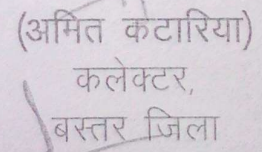 (अमित कटारिया)
कलेक्टर,
बस्तर जिला